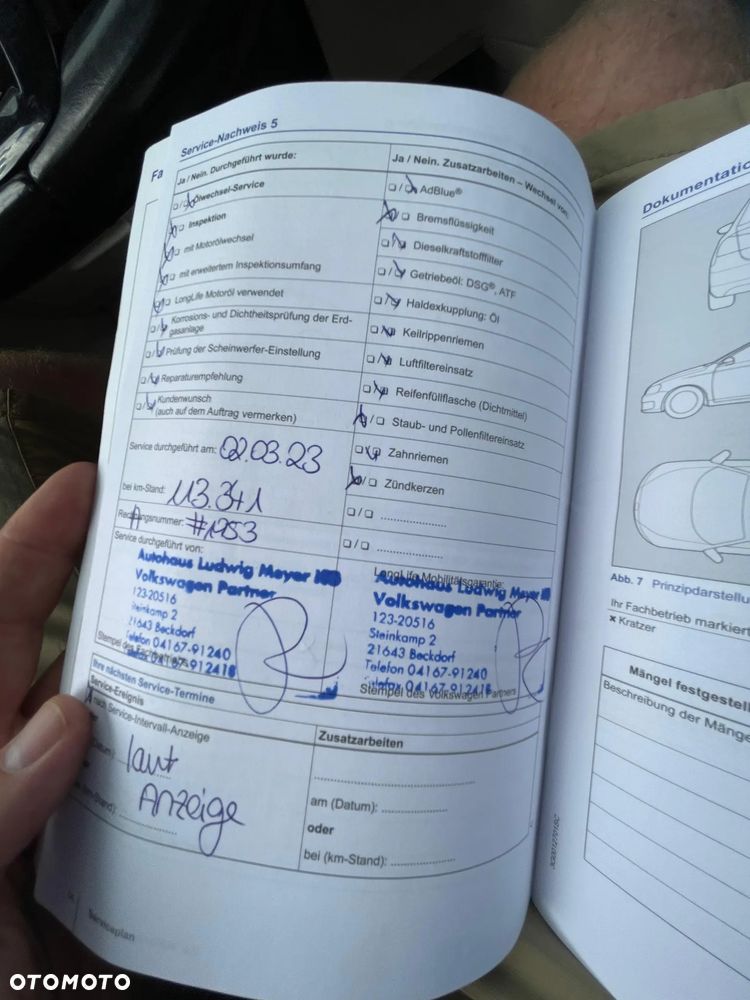 Service-Nachweis 5
Fa
Ja / Nein. Durchgeführt wurde:
Ölwechsel-Service
Inspektion
mit Motorölwechsel
mit erweitertem Inspektionsumfang
LongLife Motoröl verwendet
Korrosions- und Dichtheitsprüfung der Erd-
gasanlage
Prüfung der Scheinwerfer-Einstellung
Reparaturempfehlung
Kundenwunsch
(auch auf dem Auftrag vermerken)
Ja / Nein. Zusatzarbeiten – Wechsel von:
AdBlue®
Bremsflüssigkeit
Dieselkraftstofffilter
Getriebeöl: DSG®, ATF
Haldexkupplung: Öl
Keilrippenriemen
Luftfiltereinsatz
Reifenfüllflasche (Dichtmittel)
Staub- und Pollenfiltereinsatz
Zahnriemen
Zündkerzen
Service durchgeführt am: 02.03.23
bei km-Stand: 113.341
#1253
Service durchgeführt von:
Autohaus Ludwig Meyer
Volkswagen Partner
123-20516
Steinkamp 2
21643 Beckdorf
Telefon 04167-91240
Telefax 04167-912418
Stempel des
LongLife Mobilitätsgarantie:
Autohaus Ludwig Meyer
Volkswagen Partner
123-20516
Steinkamp 2
21643 Beckdorf
Telefon 04167-91240
Telefax 04167-912418
Stempel des Volkswagen Partners
Ihre nächsten Service-Termine
Service-Ereignis
nach Service-Intervall-Anzeige
laut
Anzeige
Zusatzarbeiten
am (Datum):
oder
bei (km-Stand):
Serviceplan
Dokumentatio
Abb. 7 Prinzipdarstellu
Ihr Fachbetrieb markiert
× Kratzer
Mängel festgestell
Beschreibung der Mänge
OTOMOTO